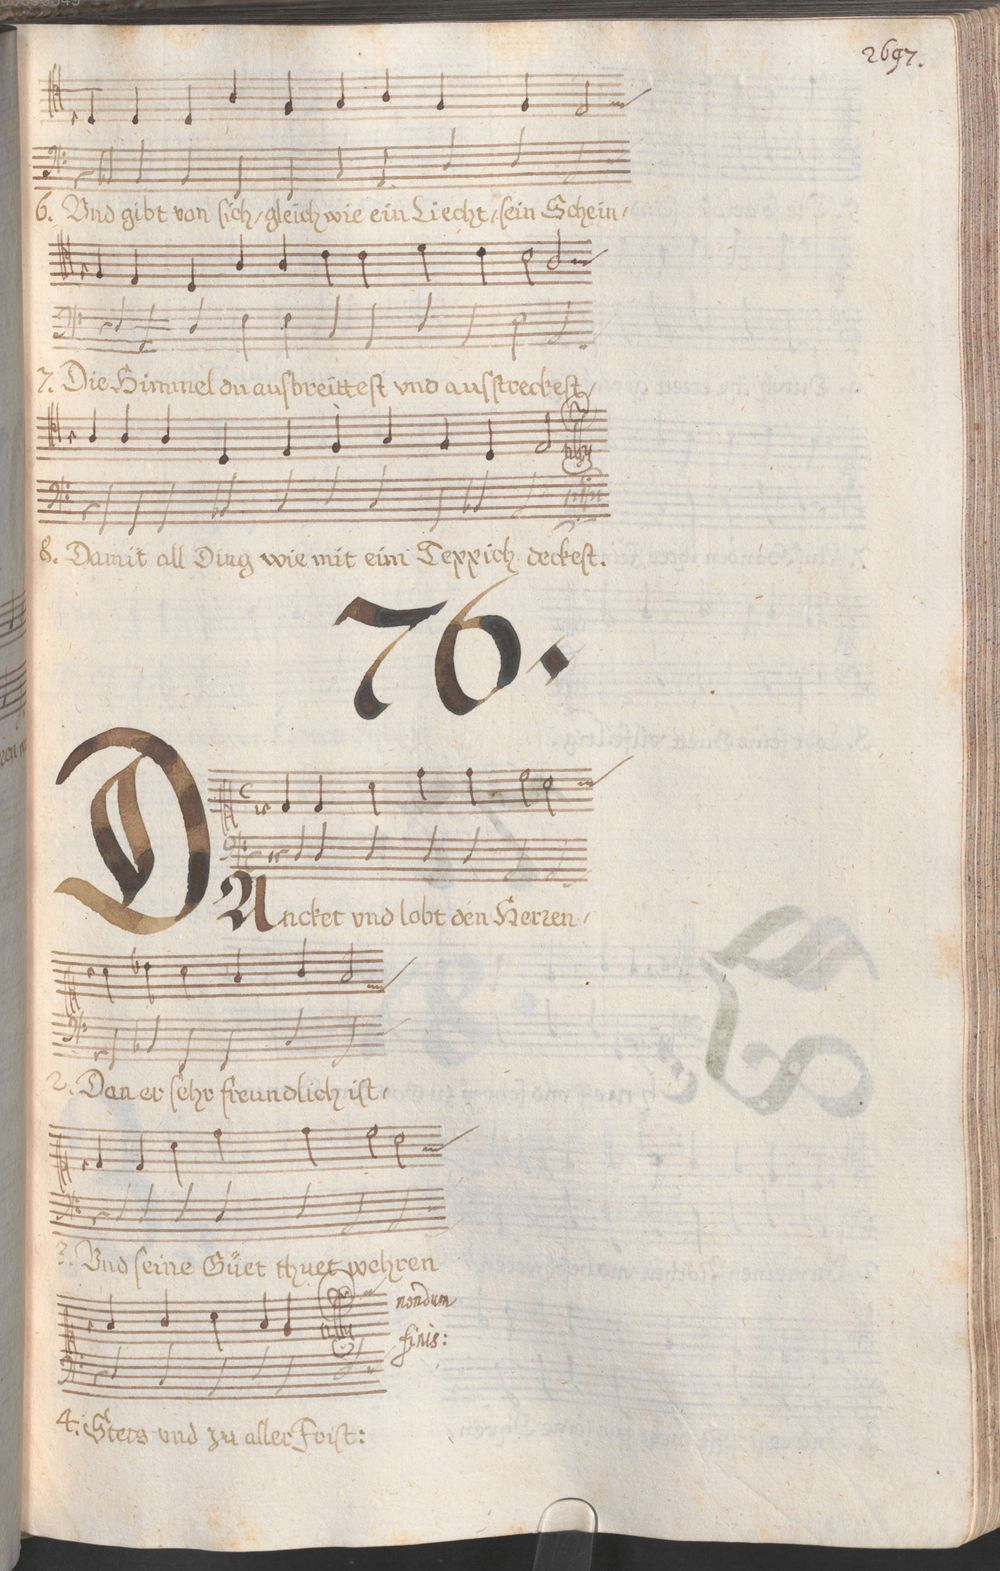 2697.
6. Vnd gibt von sich, gleich wie ein Liecht, sein Schein,
7. Die Himmel du ausbreittest vnd ausstreckest,
8. Damit all Ding wie mit eim Teppich deckest.
76.
DAncket vnd lobt den Herren,
2. Dan er sehr freundlich ist:
3. Vnd seine Güet thuet wehren
nondum
finis:
4. Stets vnd zu aller Frist: